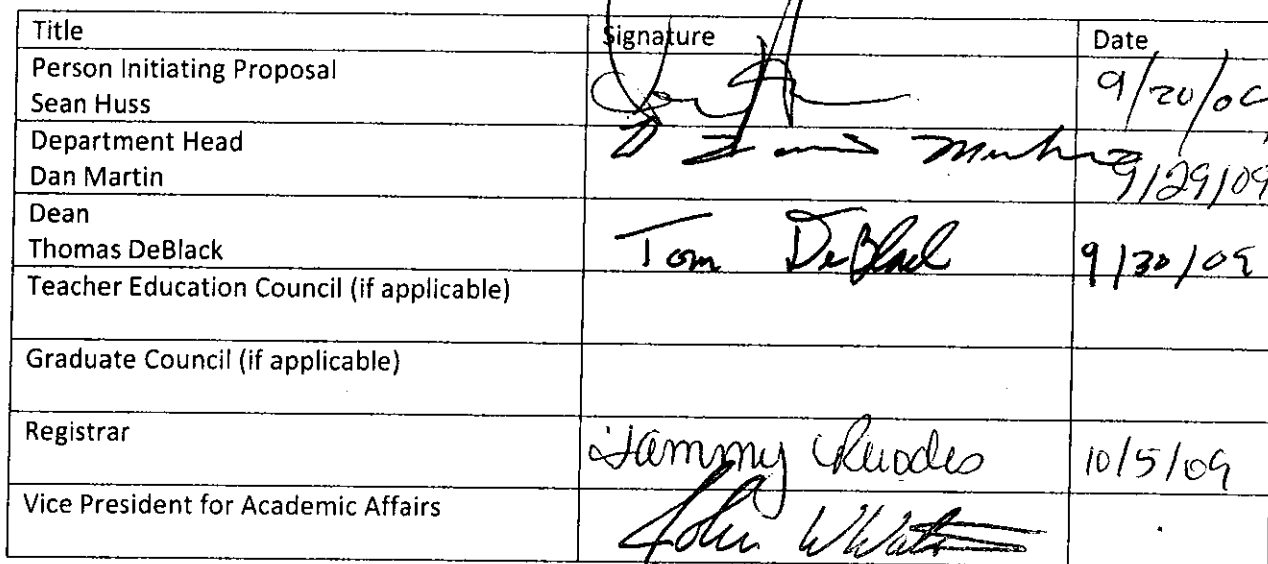 Title Signature Date
Person Initiating Proposal
Sean Huss 9/20/09
Department Head
Dan Martin 9/29/09
Dean
Thomas DeBlack Tom DeBlack 9/30/09
Teacher Education Council (if applicable)
Graduate Council (if applicable)
Registrar Tammy Rhodes 10/5/09
Vice President for Academic Affairs John W Watson